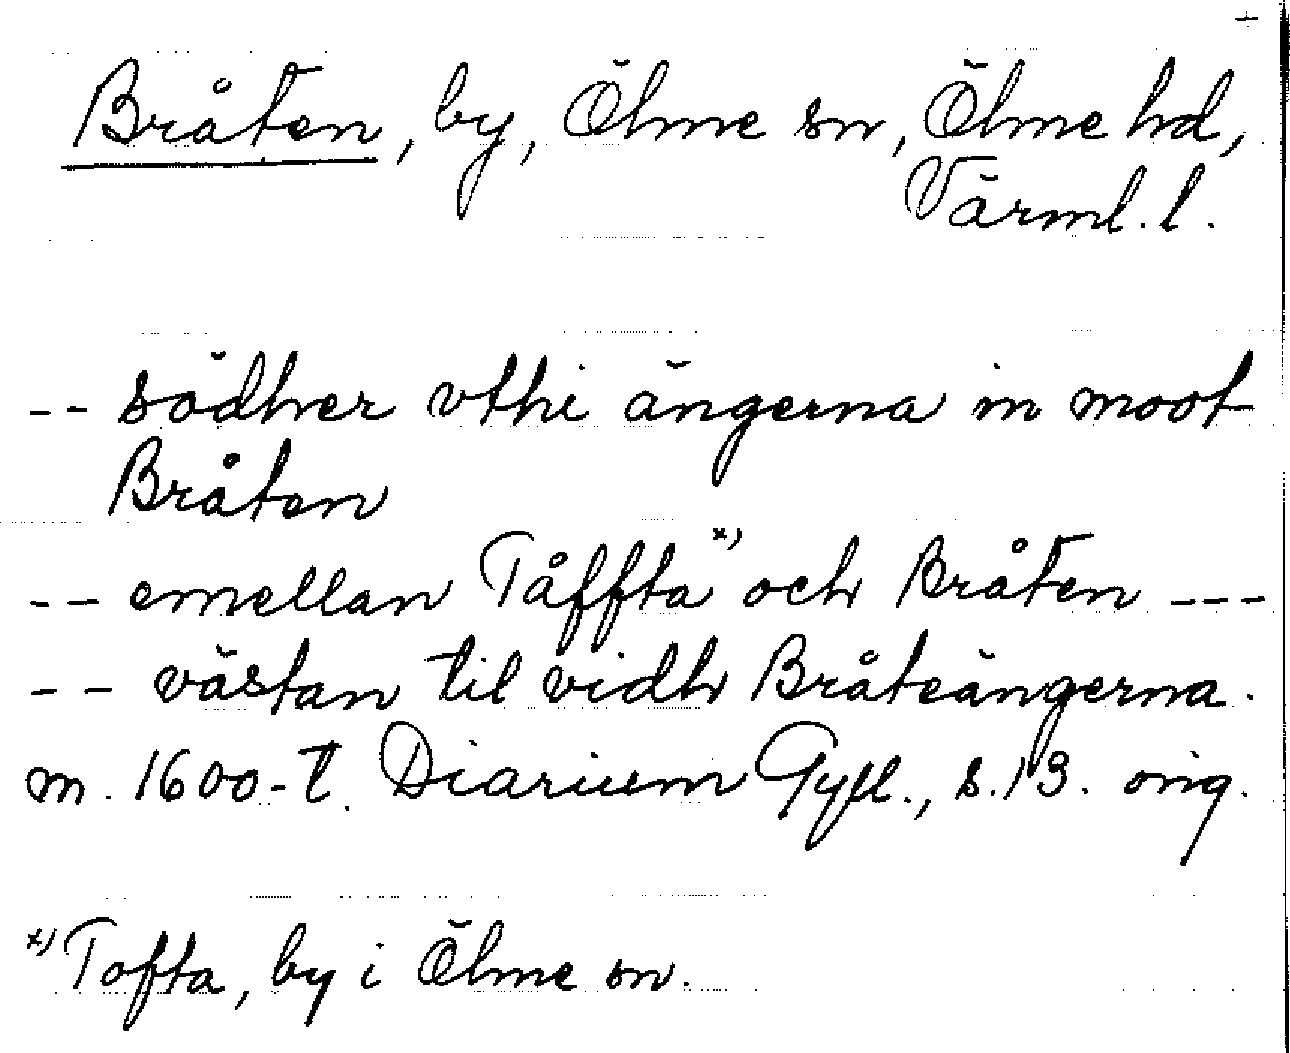 Bråten, by, Ölme sn, Ölme hd,
Värml. l.
-- södher vthi ängerna in moot
Bråten
-- emellan Tåffta x) och Bråten ---
-- västan til vidh Bråteängerna.
m. 1600-t. Diarium Gyll., s. 13. orig.
x) Tofta, by i Ölme sn.